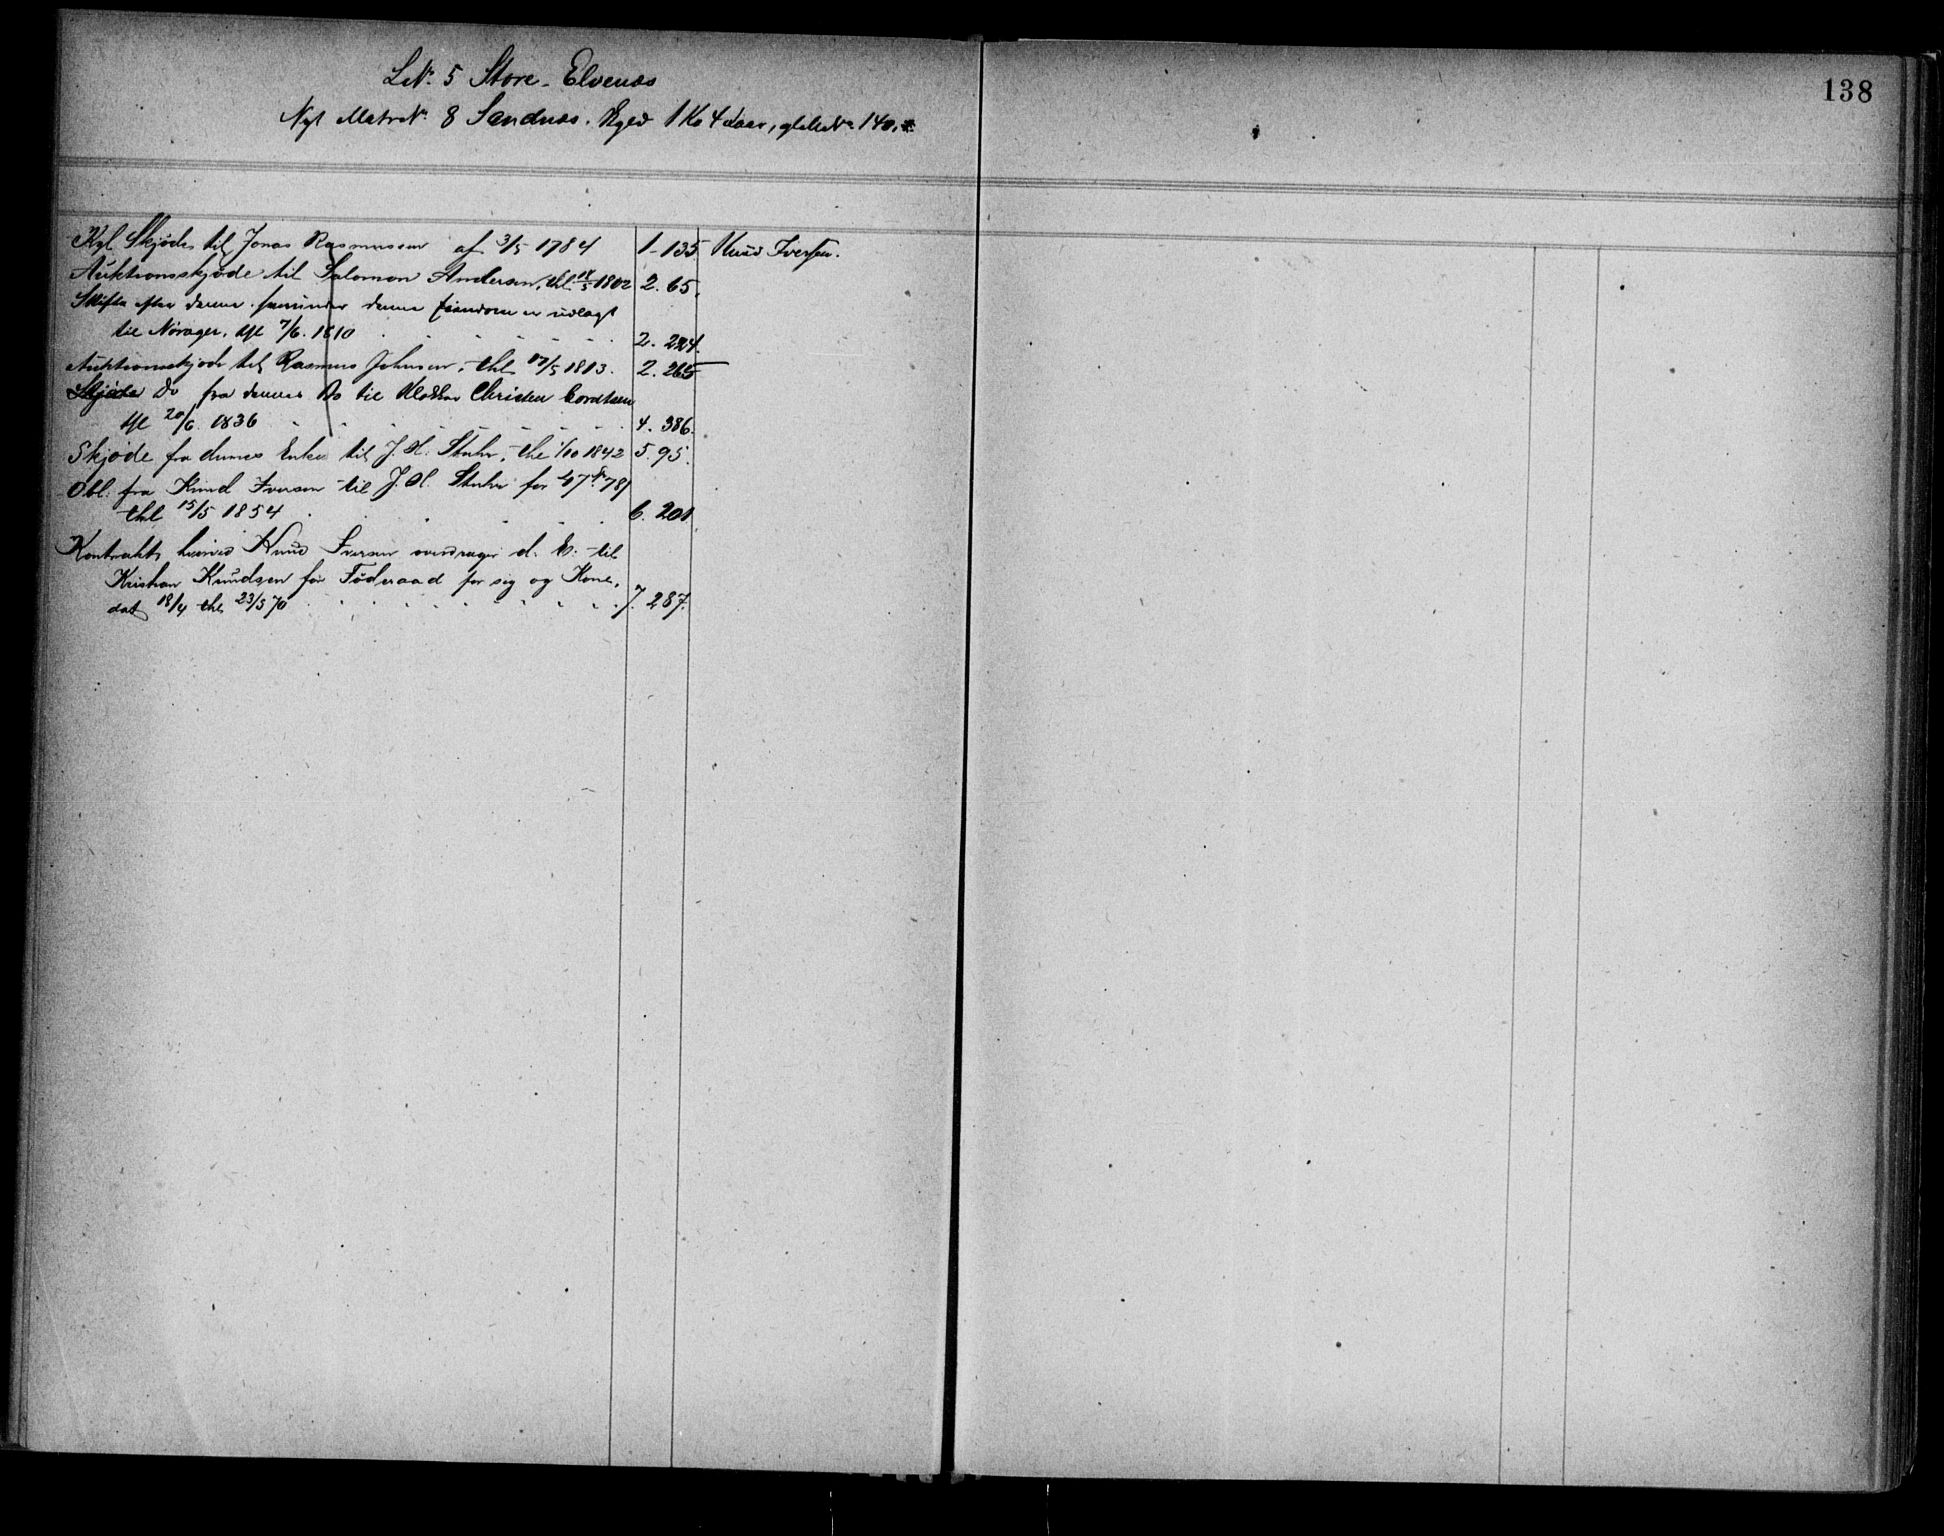 138
LN: 5 Store-Elvenæs
Nyt MatrN: 8 Sandnæs.
Kgl. Skjøde til Jonas Rasmussen af 3/5 1784 1-135 Knud Iversen.
Auktionsskjøde til Salomon Andersen, thl. 1802 2. 65.
Skifte efter denne denne Eiendom er udlagt
til Nørager, thl 7/6. 1810 2. 224.
Auktionsskjøde til Rasmus Johnsen, thl 17/5 1813. 2. 265
Skjøde Do fra dennes Bo til Klokker Christen
thl 20/6. 1836 4. 386.
Skjøde fra dennes Enke til J. H. Stuhr, thl 1/10 1842 5. 95.
Obl. fra Knud Iversen til J. H. Stuhr for
thl 15/5 1854 6. 201
Kontrakt, hvorved Knud Iversen overdrager d. E. til
Kristian Knudsen for Føderaad for sig og Kone,
dat 18/4 thl 23/5 70 7. 287.